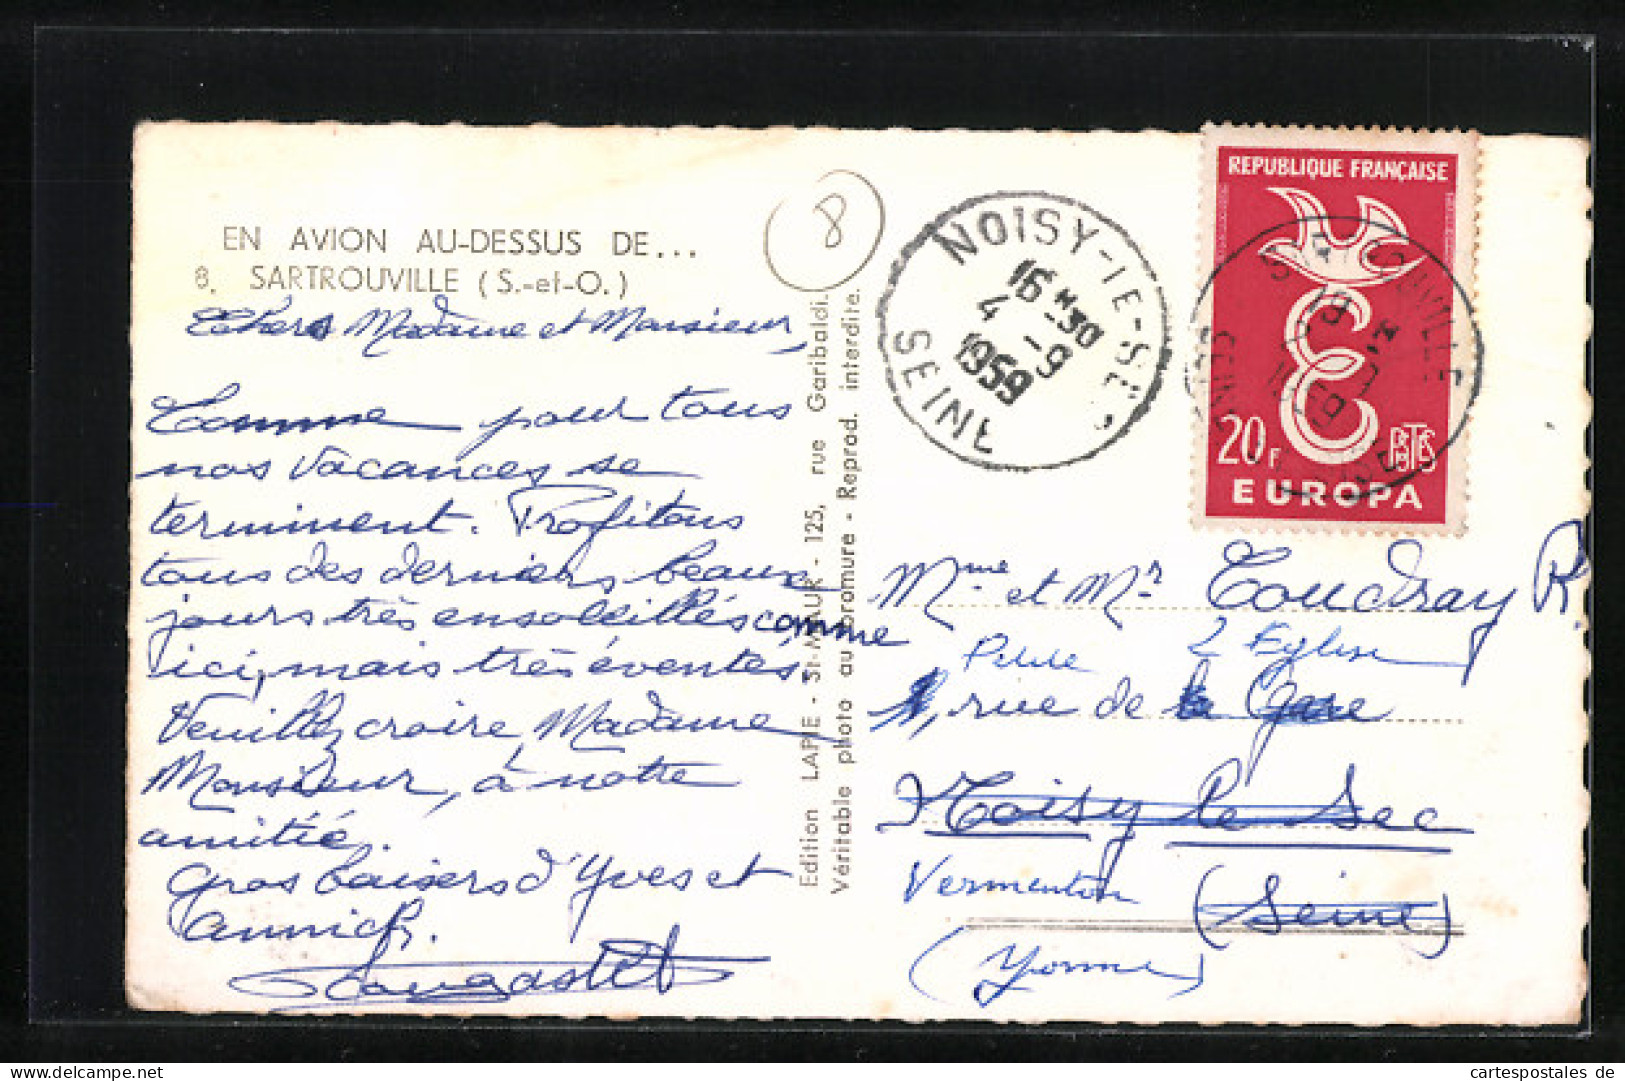 EN AVION AU-DESSUS DE...
8. SARTROUVILLE (S.-et-O.)
8
Chers Madame et Monsieur,
Comme pour tous
nos vacances se
terminent. Profitons
tous des derniers beaux
jours très ensoleillés comme
ici, mais très éventés.
Veuillez croire, Madame
Monsieur, à notre
amitié.
Gros baisers d'Yves et
Annick.
Edition LAPIE - St-MAUR - 125, rue Garibaldi.
Véritable photo au bromure - Reprod. interdite.
NOISY-LE-SEC
16 H 30
4 - 9
1959
SEINE
REPUBLIQUE FRANÇAISE
20F
POSTES
EUROPA
SARTROUVILLE
Mme et Mr Coudray R.
Petite 2 Eglise
1, rue de la Gare
Noisy le Sec
Vermenton (Seine)
(Yonne)
cartespostales de